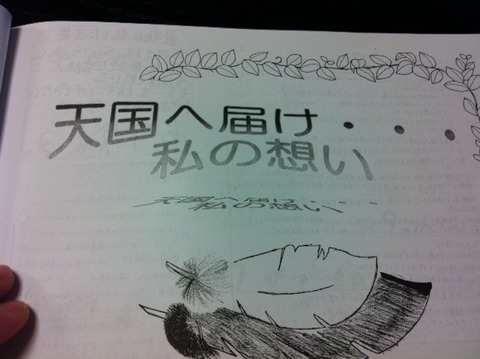 天国へ届け・・・
私の想い
天国へ届け・・・
私の想い